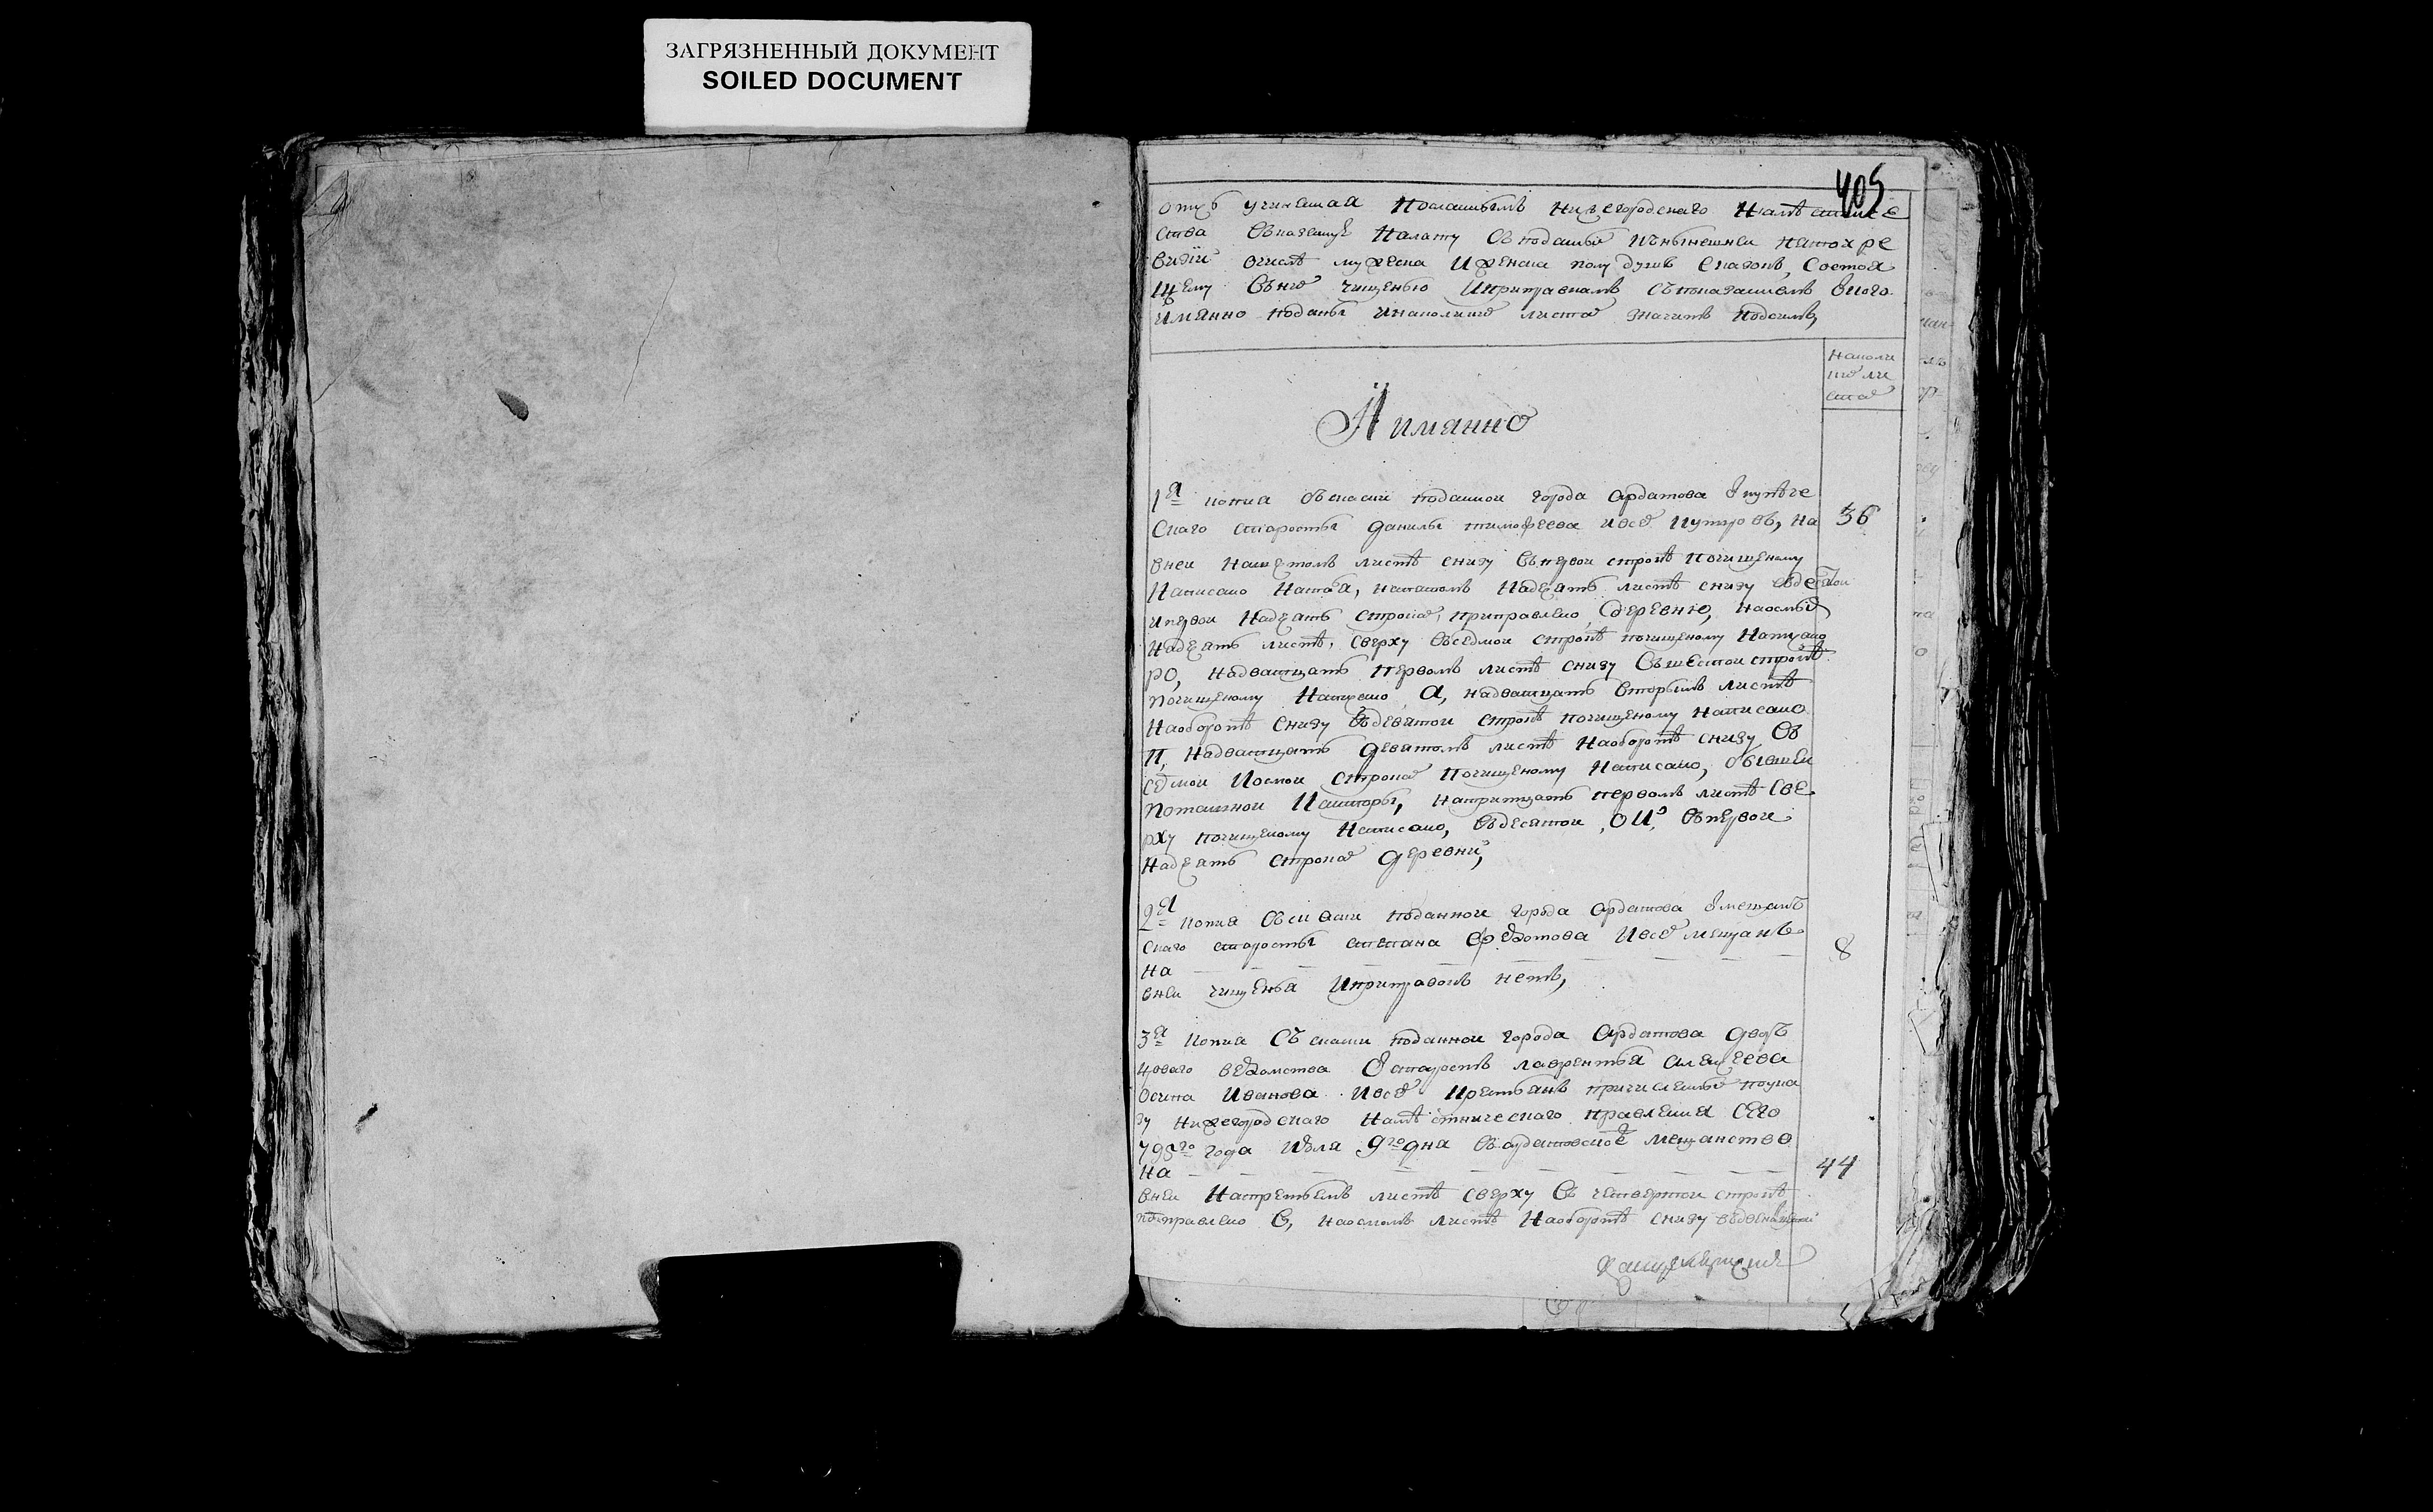 ЗАГРЯЗНЕННЫЙ ДОКУМЕНТ
SOILED DOCUMENT
405
опись учиненная посланнымъ Нижегородскаго Намѣстниче
ства вказенную Палату вподанныѣ кънынешней пятой ре
визiи очислѣ мужеска Иженска полу душъ сказокъ, состоя
щему внихъ чищенью Иприправкамъ съпоказаниемъ окого
имянно поданы инаколикихъ листахъ значитъ подсимъ,
Наколи
кихъ ли
стахъ
А имянно
1я копия съскаски поданной города ардатова ѿкупѣче
скаго старосты данилы тимофеева ивсехъ купцовъ, на
36
вней нашестомъ листѣ снизу въпервой строкѣ почищеному
Написано
листѣ снизу
ипервой Надцать строкахъ, приправлено деревню, наосмъ
Надцать листѣ, сверху вседмой строкѣ почищеному Написано
ро, Надватцать первомъ листѣ снизу въшестой строкѣ
почищеному Написано а, надватцать второмъ листѣ
Наоборотѣ снизу въдевятой строкѣ почищеному написано
п, Надватцать девятомъ листѣ Наоборотѣ снизу въ
седмой Иосмой строкахъ почищеному Написано,
поташной Канторы, натритцать первомъ листѣ све
рху почищеному Написано, въдесятой, въпервой
Надцать строкахъ деревни,
2я копия съскаски поданной города ардатова ѿмещанъ
скаго старосты степана федотова Ивсехъ мещанъ
на
8
вней чищенья Иприправокъ нетъ,
3я копия Съ скаски поданной города ардатова дворъ
цоваго ведомства ѿстаростъ лаврентья алексеева
осипа Иванова Ивсехъ крестьянъ причисленыхъ поука
зу Нижегородскаго Намѣстническаго правления сего
795го года Июля 9го дня въардатовское мещанство
на
44
вней Натретьемъ листѣ сверху въ четвертой строкѣ
поправлено в, наосмомъ листѣ Наоборотѣ снизу